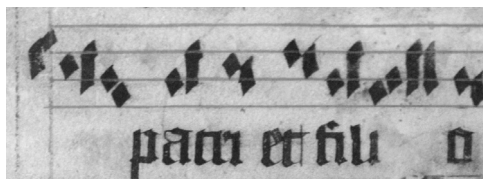 patri et fili o